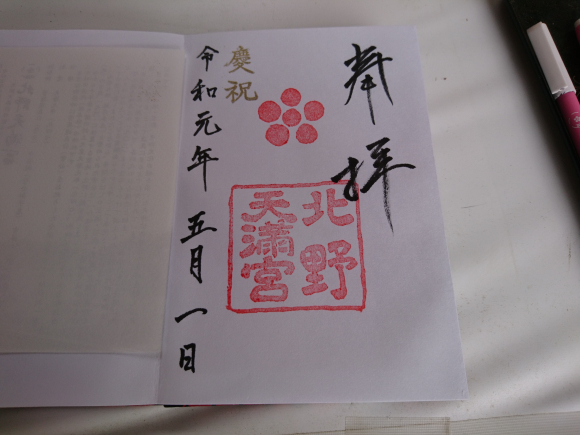 奉拝
北野
天満宮
慶祝
令和元年 五月一日